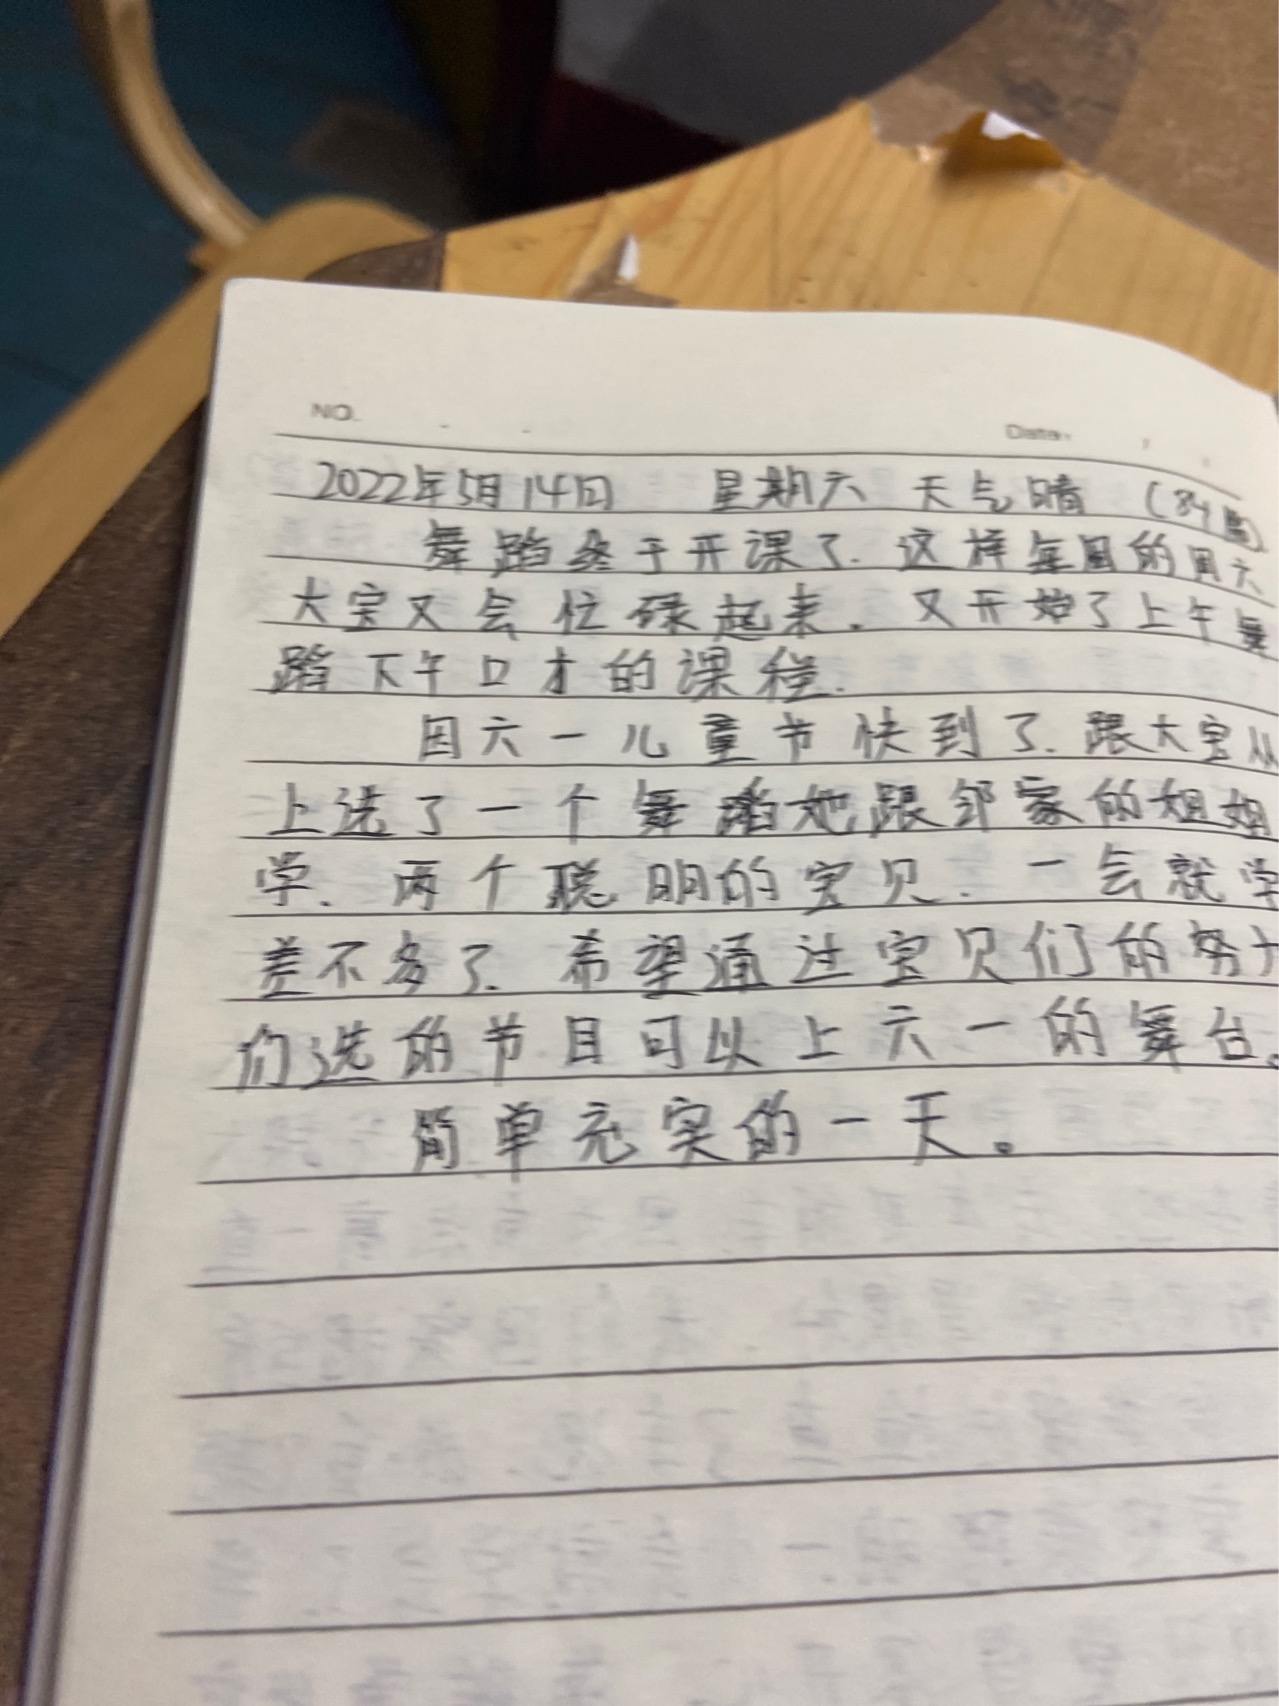 NO.
Date:
2022年5月14日 星期六 天气晴 (84篇)
舞蹈终于开课了.这样每周的周六
大宝又会忙碌起来.又开始了上午舞
蹈下午口才的课程.
因六一儿童节快到了.跟大宝从
上选了一个舞蹈她跟邻家的姐姐
学.两个聪明的宝贝.一会就学
差不多了.希望通过宝贝们的努
们选的节目可以上六一的舞台。
简单充实的一天。